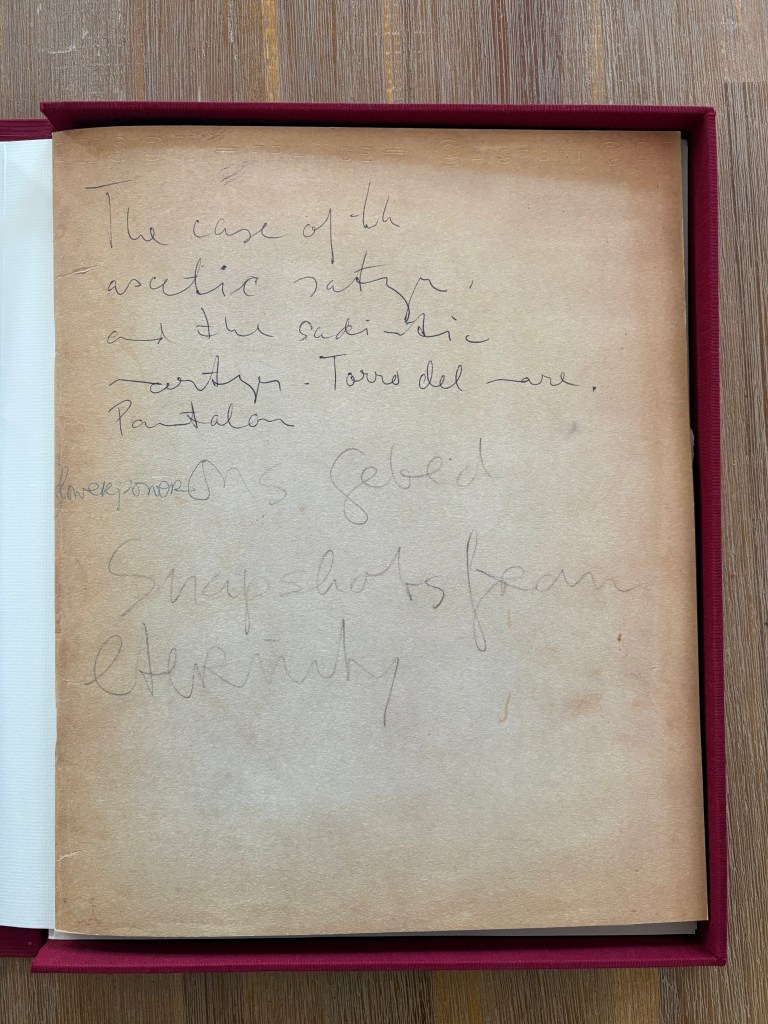 The case of th
ascetic satyr,
and the sadistic
martyr. Torro del mare.
Pantalon
flowerpower. Ons Gebed
Snapshots from
eternity